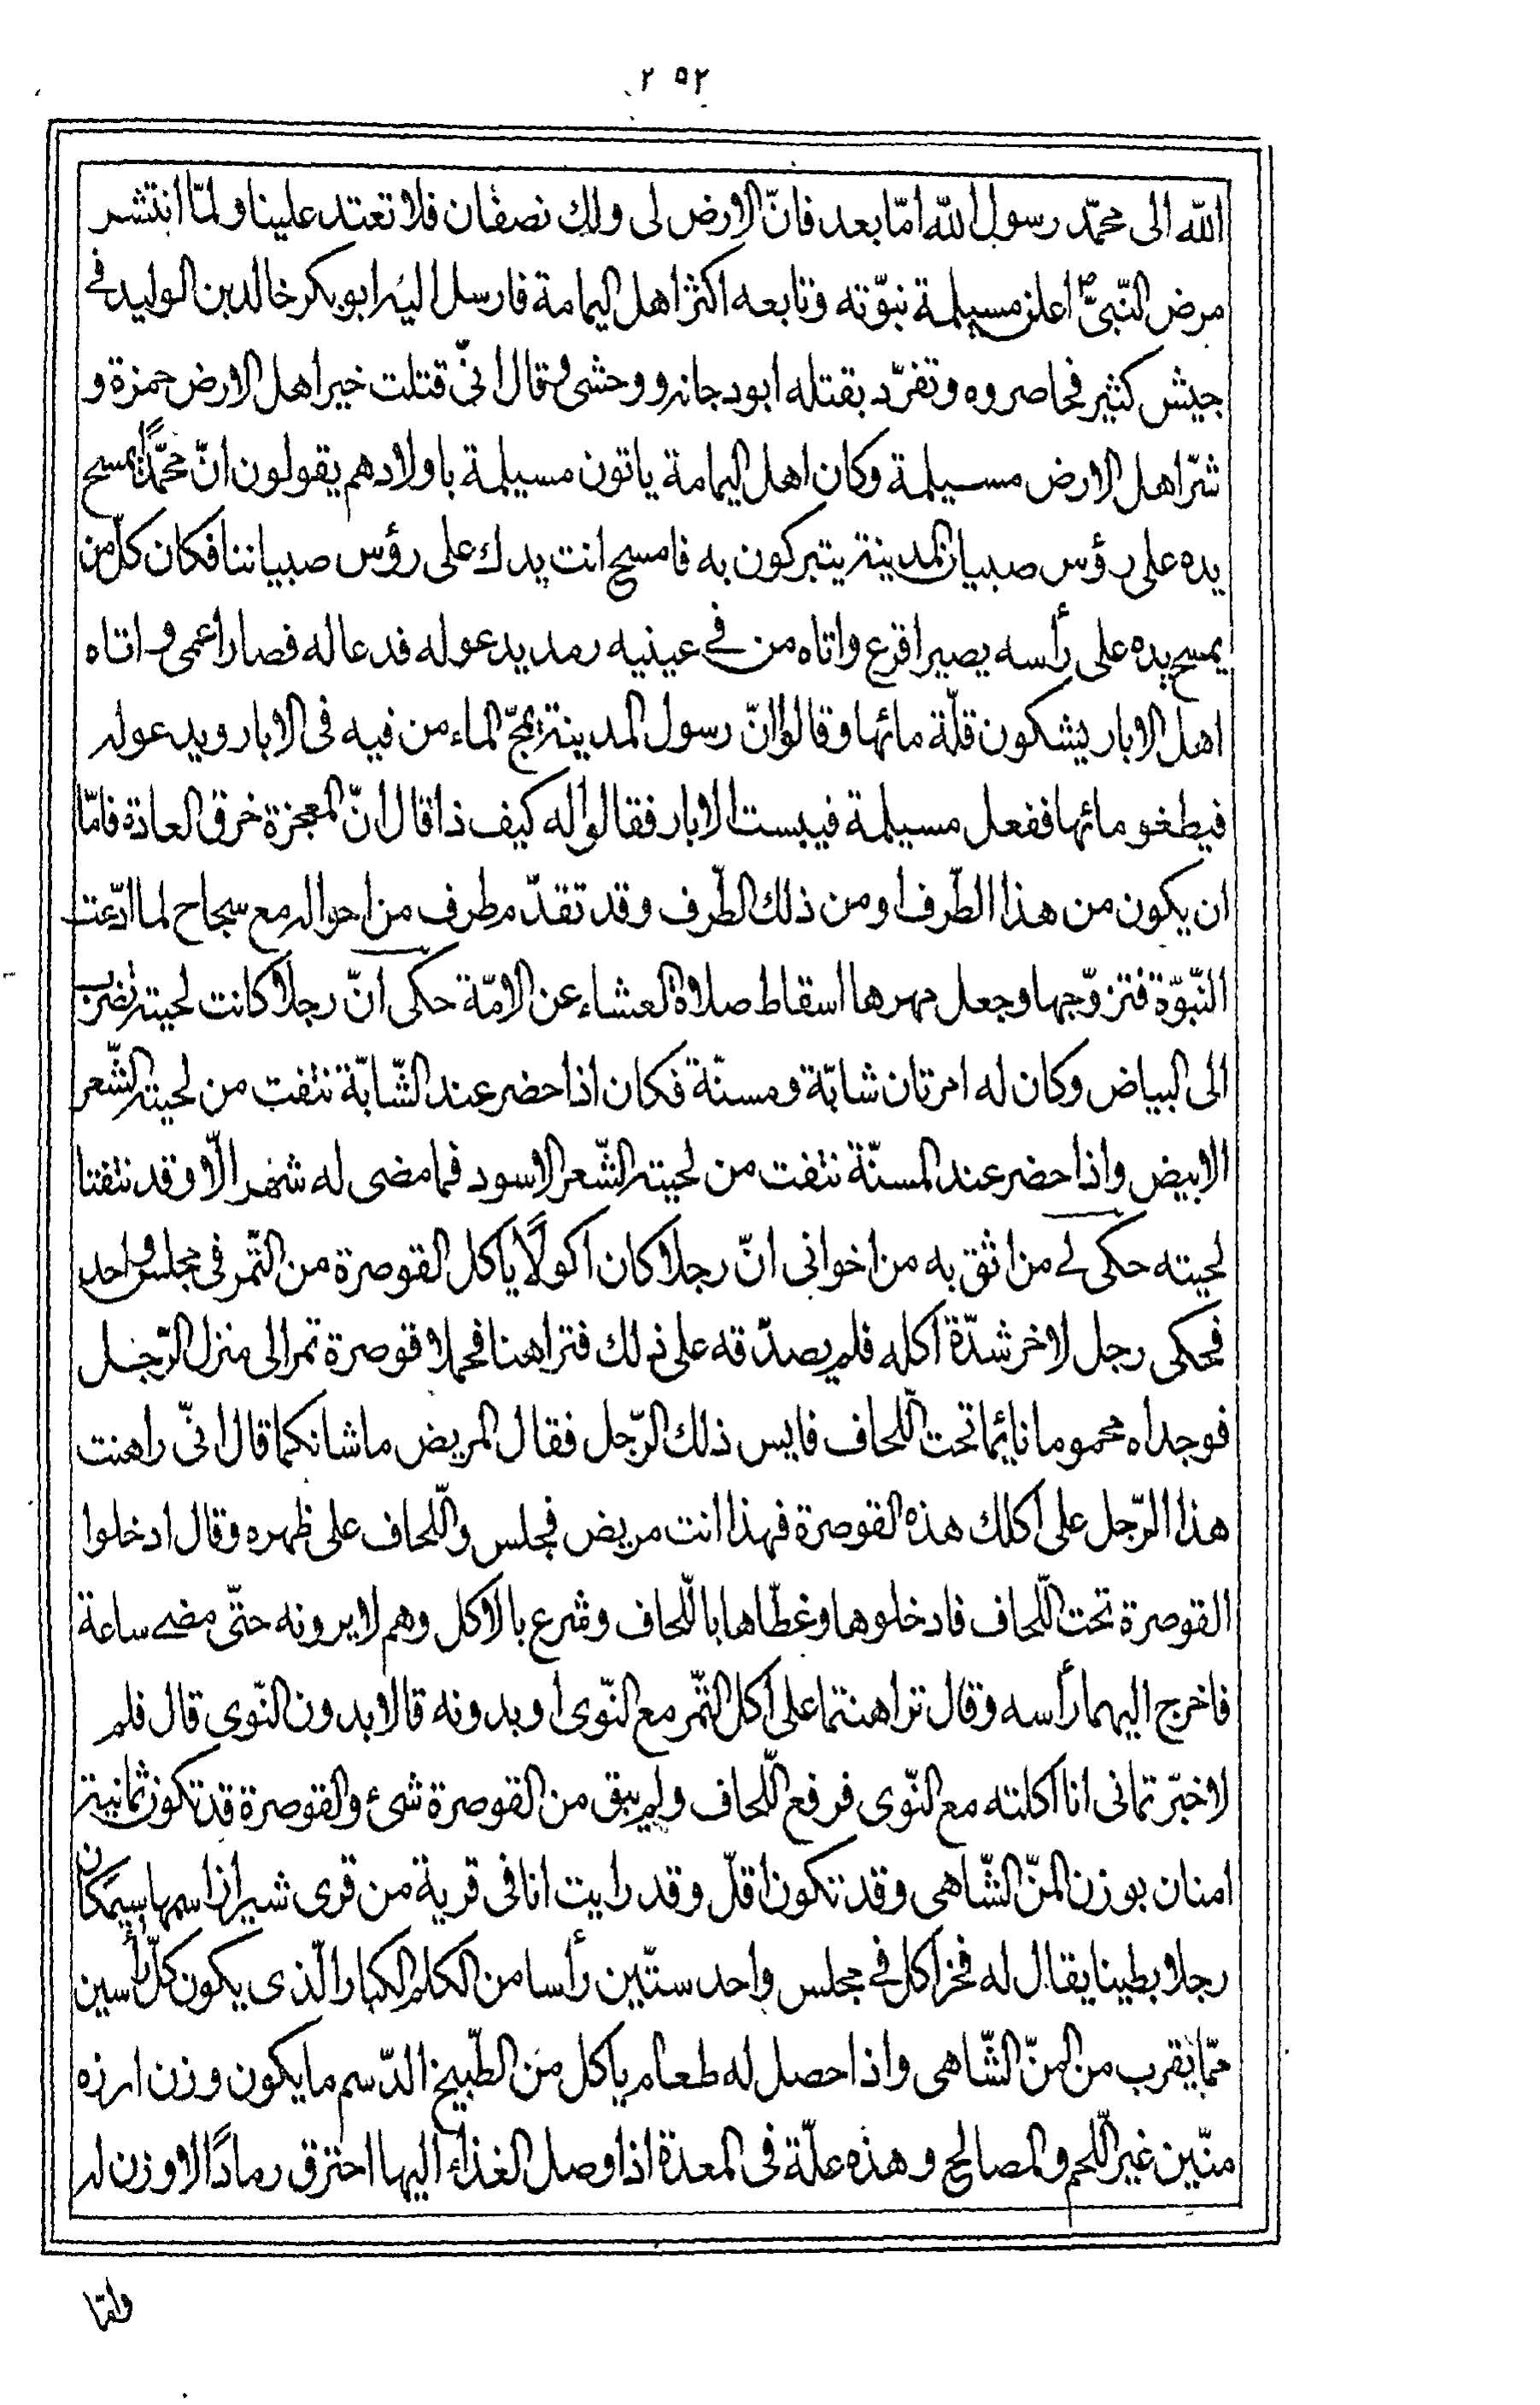 ٢٥٢
الله الى محمّد رسول الله امّا بعد فانّ الارض لى ولك نصفان فلا تعتد علينا ولمّا انتشر
مرض النّبىّ ص اعلن مسيلمة نبوّته وتابعه اكثر اهل اليمامة فارسل اليه ابو بكر خالد بن الوليد فى
جيش كثير فحاصروه وتفرّد بقتله ابو دجانه ووحشى وقال انّى قتلت خير اهل الارض حمزة و
شرّ اهل الارض مسيلمة وكان اهل اليمامة ياتون مسيلمة باولادهم يقولون انّ محمّدًا يمسح
يده على رؤس صبيان المدينة يتبركون به فامسح انت يدك على رؤس صبياننا فكان كلّ من
يمسح يده على رأسه يصير اقرع واتاه من فى عينيه رمد يدعو له فدعا له فصار اعمى واتاه
اهل الابار يشكون قلّة مائها وقالوا انّ رسول المدينة يمجّ الماء من فيه فى الابار ويدعو له
فيطغو مائها ففعل مسيلمة فيبست الابار فقالوا له كيف ذا قال انّ المعجزة خرق العادة فامّا
ان يكون من هذا الطّرف او من ذلك الطّرف وقد تقدّم طرف من احواله مع سجاح لما ادّعت
النّبوّة فتزوّجها وجعل مهرها اسقاط صلاة العشاء عن الامّة حكى انّ رجلا كانت لحيته تضرب
الى البياض وكان له امرتان شابّة ومسنّة فكان اذا حضر عند الشّابّة نتفت من لحيته الشّعر
الابيض واذا حضر عند المسنّة نتفت من لحيته الشّعر الاسود فما مضى له شهر الّا وقد نتفتا
لحيته حكى لى من اثق به من اخوانى انّ رجلا كان اكولًا ياكل القوصرة من التّمر فى مجلس واحد
فحكى رجل لاخر شدّة اكله فلم يصدّقه على ذلك فتراهنا فحملا قوصرة تمر الى منزل الرّجل
فوجداه محموما نائما تحت اللّحاف فايس ذلك الرّجل فقال المريض ما شانكما قال انّى راهنت
هذا الرّجل على اكلك هذه القوصرة فهذا انت مريض فجلس واللّحاف على ظهره وقال ادخلوا
القوصرة تحت اللّحاف فادخلوها وغطّاها باللّحاف وشرع بالاكل وهم لا يرونه حتّى مضى ساعة
فاخرج اليهما رأسه وقال تراهنتما على اكل التّمر مع النّوى او بدونه قالا بدون النّوى قال فلم
لا خبّرتمانى انا اكلته مع النّوى فرفع اللّحاف ولم يبق من القوصرة شئ والقوصرة قد تكون ثمانية
امنان بوزن المنّ الشّاهى وقد تكون اقلّ وقد رايت انا فى قرية من قرى شيراز اسمها سيمكان
رجلا بطينا يقال له فخر اكل فى مجلس واحد ستّين رأسا من الكلم الكبار الّذى يكون كلّ رأسين
ممّا يقرب من المنّ الشّاهى واذا حصل له طعام ياكل من الطّبيخ الدّسم ما يكون وزن ارزه
منّين غير اللّحم والمصالح وهذه علّة فى المعدة اذا وصل الغذاء اليها احترق رمادًا لا وزن له
وامّا